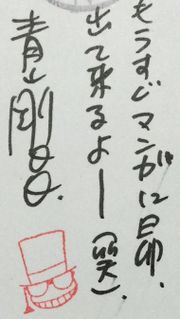 もうすぐマンガに昴.
出て来るよー(笑).
青山剛昌.